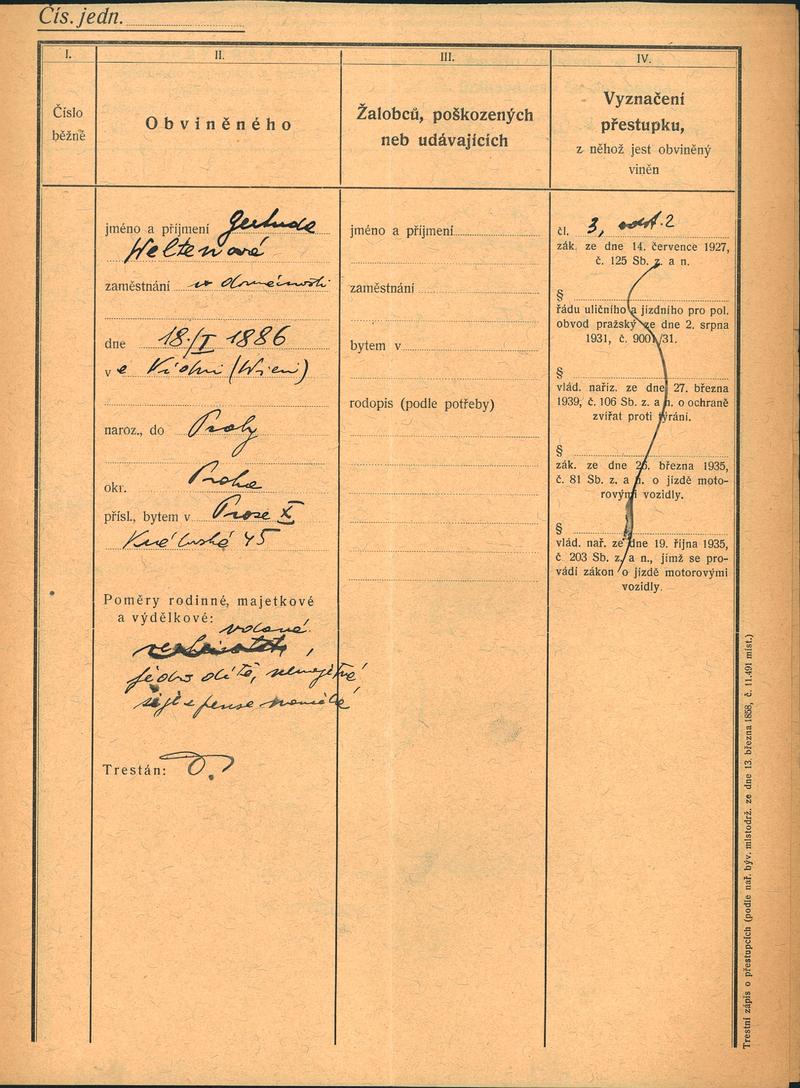 Čís. jedn.
I.
Číslo
běžné
II.
Obviněného
III.
Žalobců, poškozených
neb udávajících
IV.
Vyznačení
přestupku,
z něhož jest obviněný
viněn
jméno a příjmení Gertrude
Weltenová
zaměstnání v domácnosti
dne 18./I 1886
v e Vídni (Wien)
naroz., do Prahy
okr. Praha
přísl., bytem v Praze X
45
Poměry rodinné, majetkové
a výdělkové:
vdaná
jedno dítě, nemajetná,
žije z pense manžela
Trestán: 0.
jméno a příjmení
zaměstnání
bytem v
rodopis (podle potřeby)
čl. 3, odst. 2
zák. ze dne 14. července 1927,
č. 125 Sb. z. a n.
§
řádu uličního a jízdního pro pol.
obvod pražský ze dne 2. srpna
1931, č. 900/31.
§
vlád. naříz. ze dne 27. března
1939, č. 106 Sb. z. a n. o ochraně
zvířat proti týrání.
§
zák. ze dne 26. března 1935,
č. 81 Sb. z. a n. o jízdě moto-
rovými vozidly.
§
vlád. nař. ze dne 19. října 1935,
č 203 Sb. z. a n., jímž se pro-
vádí zákon o jízdě motorovými
vozidly.
Trestní zápis o přestupcích (podle nař. býv. místodrž. ze dne 13. března 1858, č. 11.491 míst.)